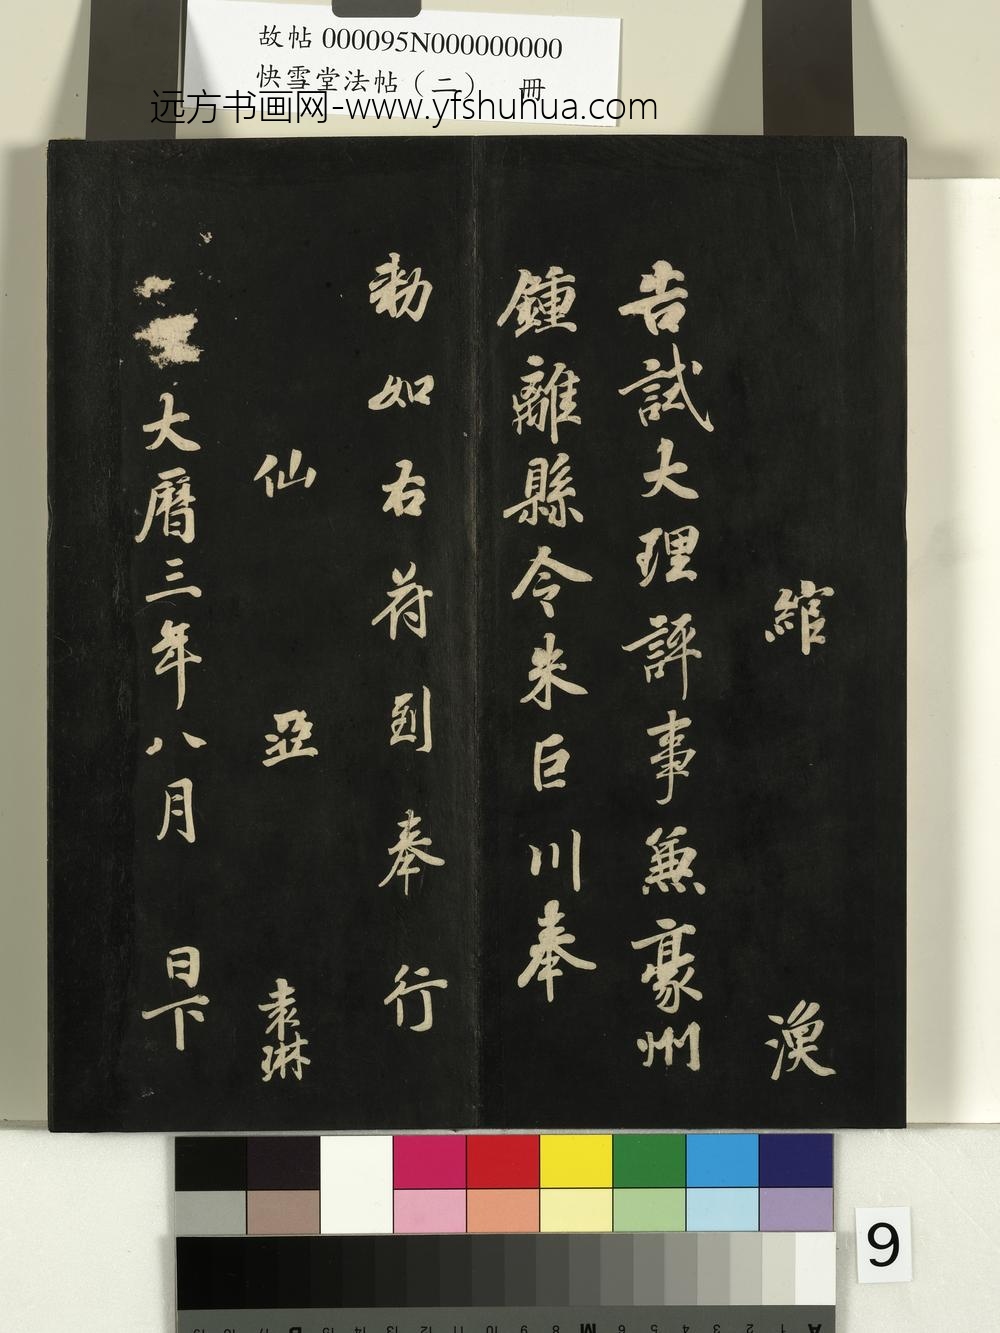 故帖 000095N000000000
快雪堂法帖（二） 冊
远方书画网-www.yfshuhua.com
綰 渙
告試大理評事兼豪州
鍾離縣令朱巨川奉
勑如右符到奉行
仙 亞 袁琳
大曆三年八月 日下
9